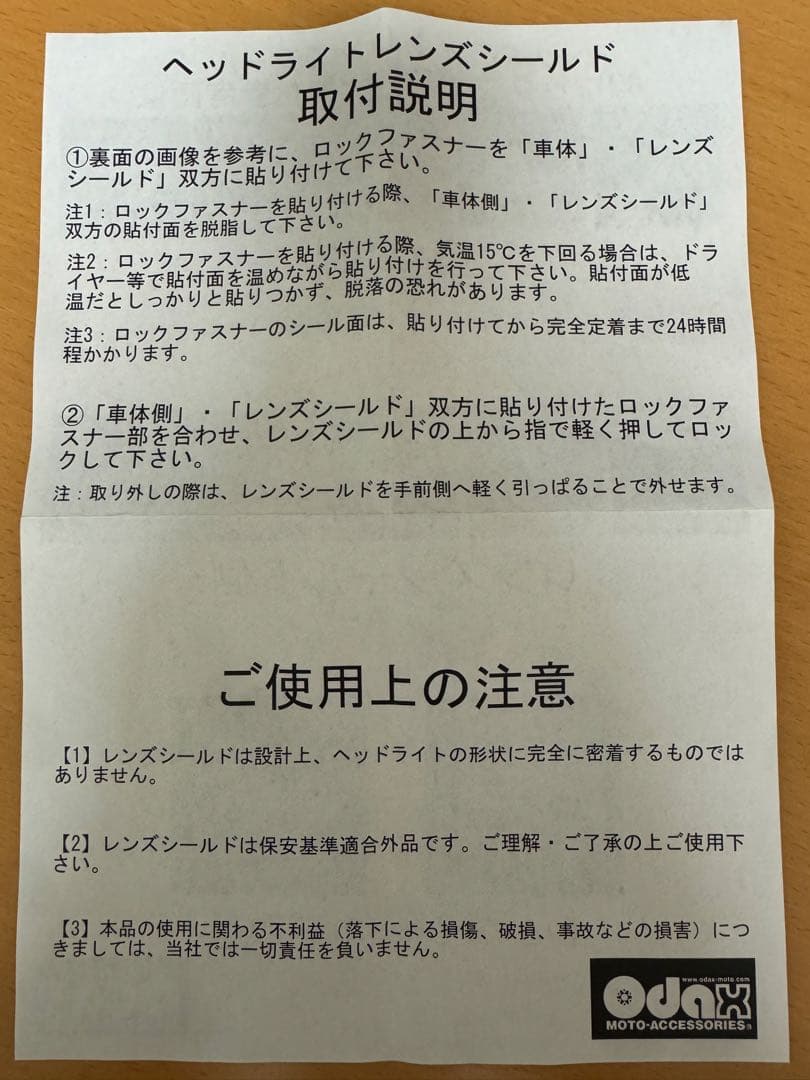 ヘッドライトレンズシールド
取付説明
①裏面の画像を参考に、ロックファスナーを「車体」・「レンズ
シールド」双方に貼り付けて下さい。
注1：ロックファスナーを貼り付ける際、「車体側」・「レンズシールド」
双方の貼付面を脱脂して下さい。
注2：ロックファスナーを貼り付ける際、気温15℃を下回る場合は、ドラ
イヤー等で貼付面を温めながら貼り付けを行って下さい。貼付面が低
温だとしっかりと貼りつかず、脱落の恐れがあります。
注3：ロックファスナーのシール面は、貼り付けてから完全定着まで24時間
程かかります。
②「車体側」・「レンズシールド」双方に貼り付けたロックファ
スナー部を合わせ、レンズシールドの上から指で軽く押してロッ
クして下さい。
注：取り外しの際は、レンズシールドを手前側へ軽く引っぱることで外せます。
ご使用上の注意
【1】レンズシールドは設計上、ヘッドライトの形状に完全に密着するものでは
ありません。
【2】レンズシールドは保安基準適合外品です。ご理解・ご了承の上ご使用下
さい。
【3】本品の使用に関わる不利益（落下による損傷、破損、事故などの損害）につ
きましては、当社では一切責任を負いません。
www.odax-moto.com
Odax
MOTO-ACCESSORIES®